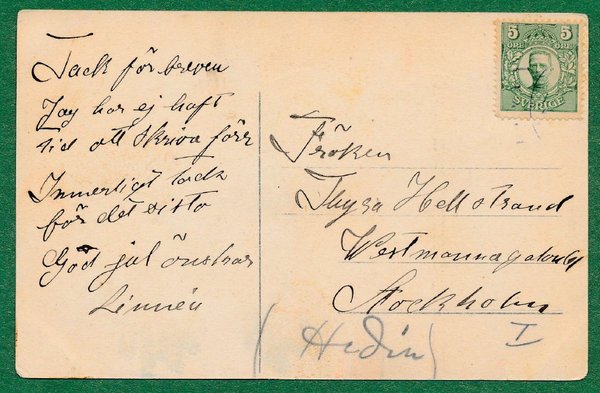 Tack för breven
Jag har ej haft
tid att skriva förr
Innerligt tack
för det sista
God jul önskar
Linnéa
5 5
ÖRE ÖRE
SVERIGE
Fröken
Thyra Hellstrand
Westmannagatan
Stockholm
I
(Hedin)